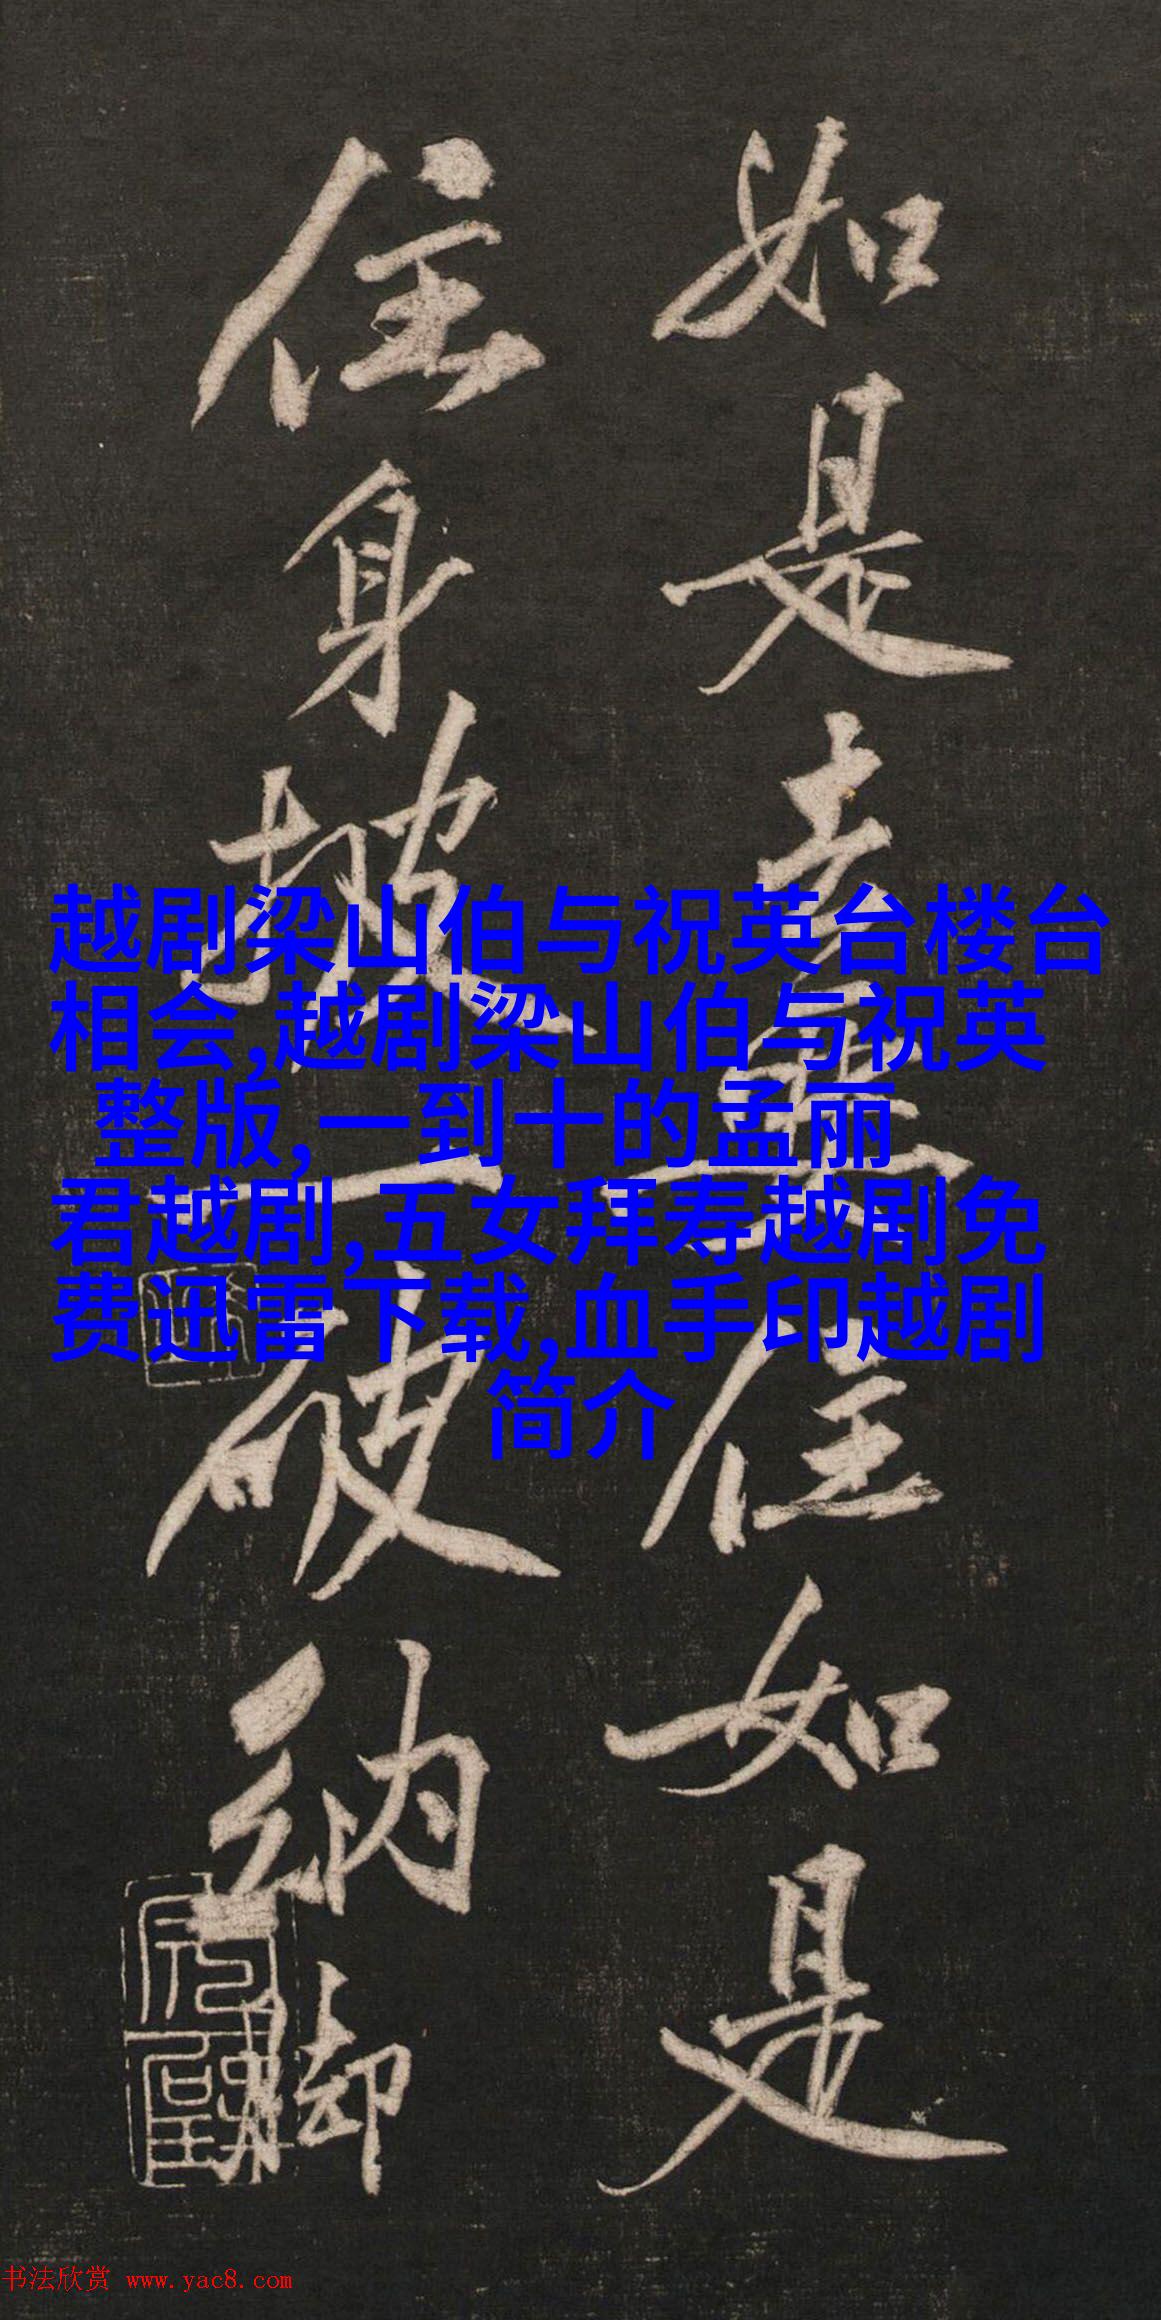 越剧梁山伯与祝英台楼台
相会,越剧梁山伯与祝英
整版,一到十的孟丽
君越剧,五女拜寿越剧免
费迅雷下载,血手印越剧
简介
如是去無住如是
住身披一破納脚
书法欣赏 www.yac8.com